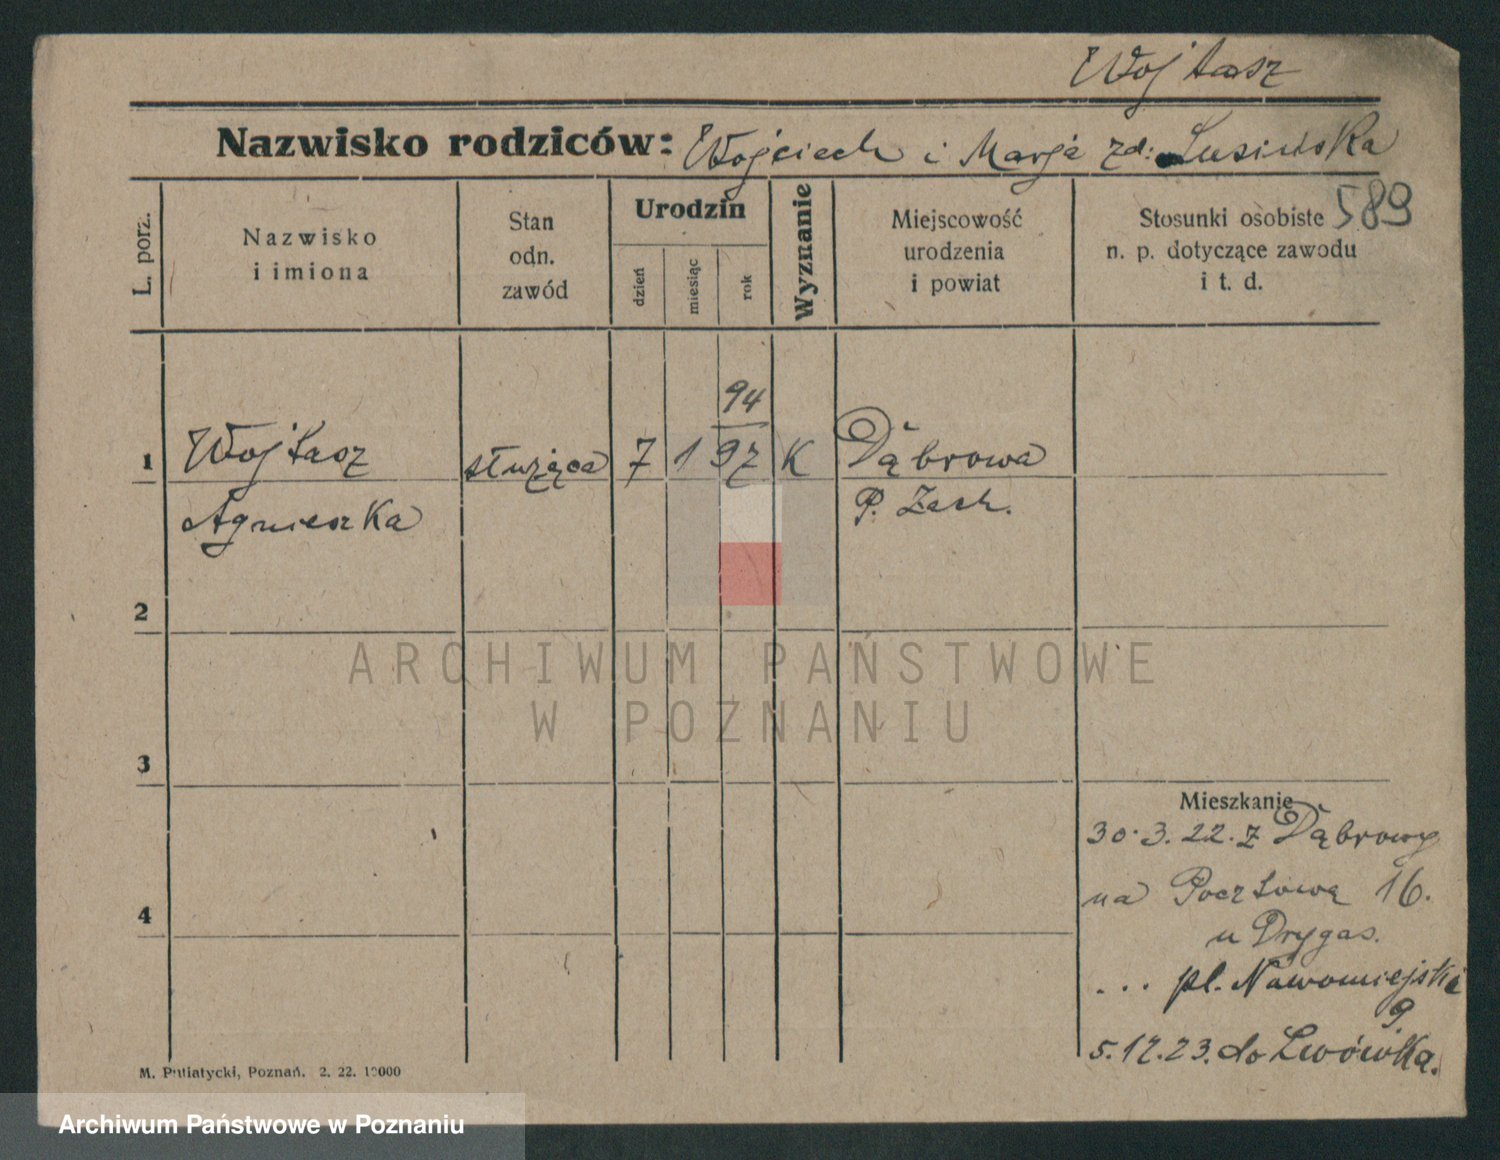 Wojtasz
Nazwisko rodziców: Wojciech i Marja zd: Lusińska
589
L. porz.
Nazwisko
i imiona
Stan
odn.
zawód
Urodzin
dzień
miesiąc
rok
Wyznanie
Miejscowość
urodzenia
i powiat
Stosunki osobiste
n. p. dotyczące zawodu
i t. d.
94
1 Wojtasz służąca 7 1 97 K Dąbrowa
Agnieszka P. Zach.
2
ARCHIWUM PAŃSTWOWE
W POZNANIU
3
Mieszkanie
30.3.22. z Dąbrowy
na Pocztową 16.
4
u Drygas.
... pl. Nowomiejski
9
5.12.23. do Lwówka.
M. Putiatycki, Poznań. 2. 22. 10000
Archiwum Państwowe w Poznaniu